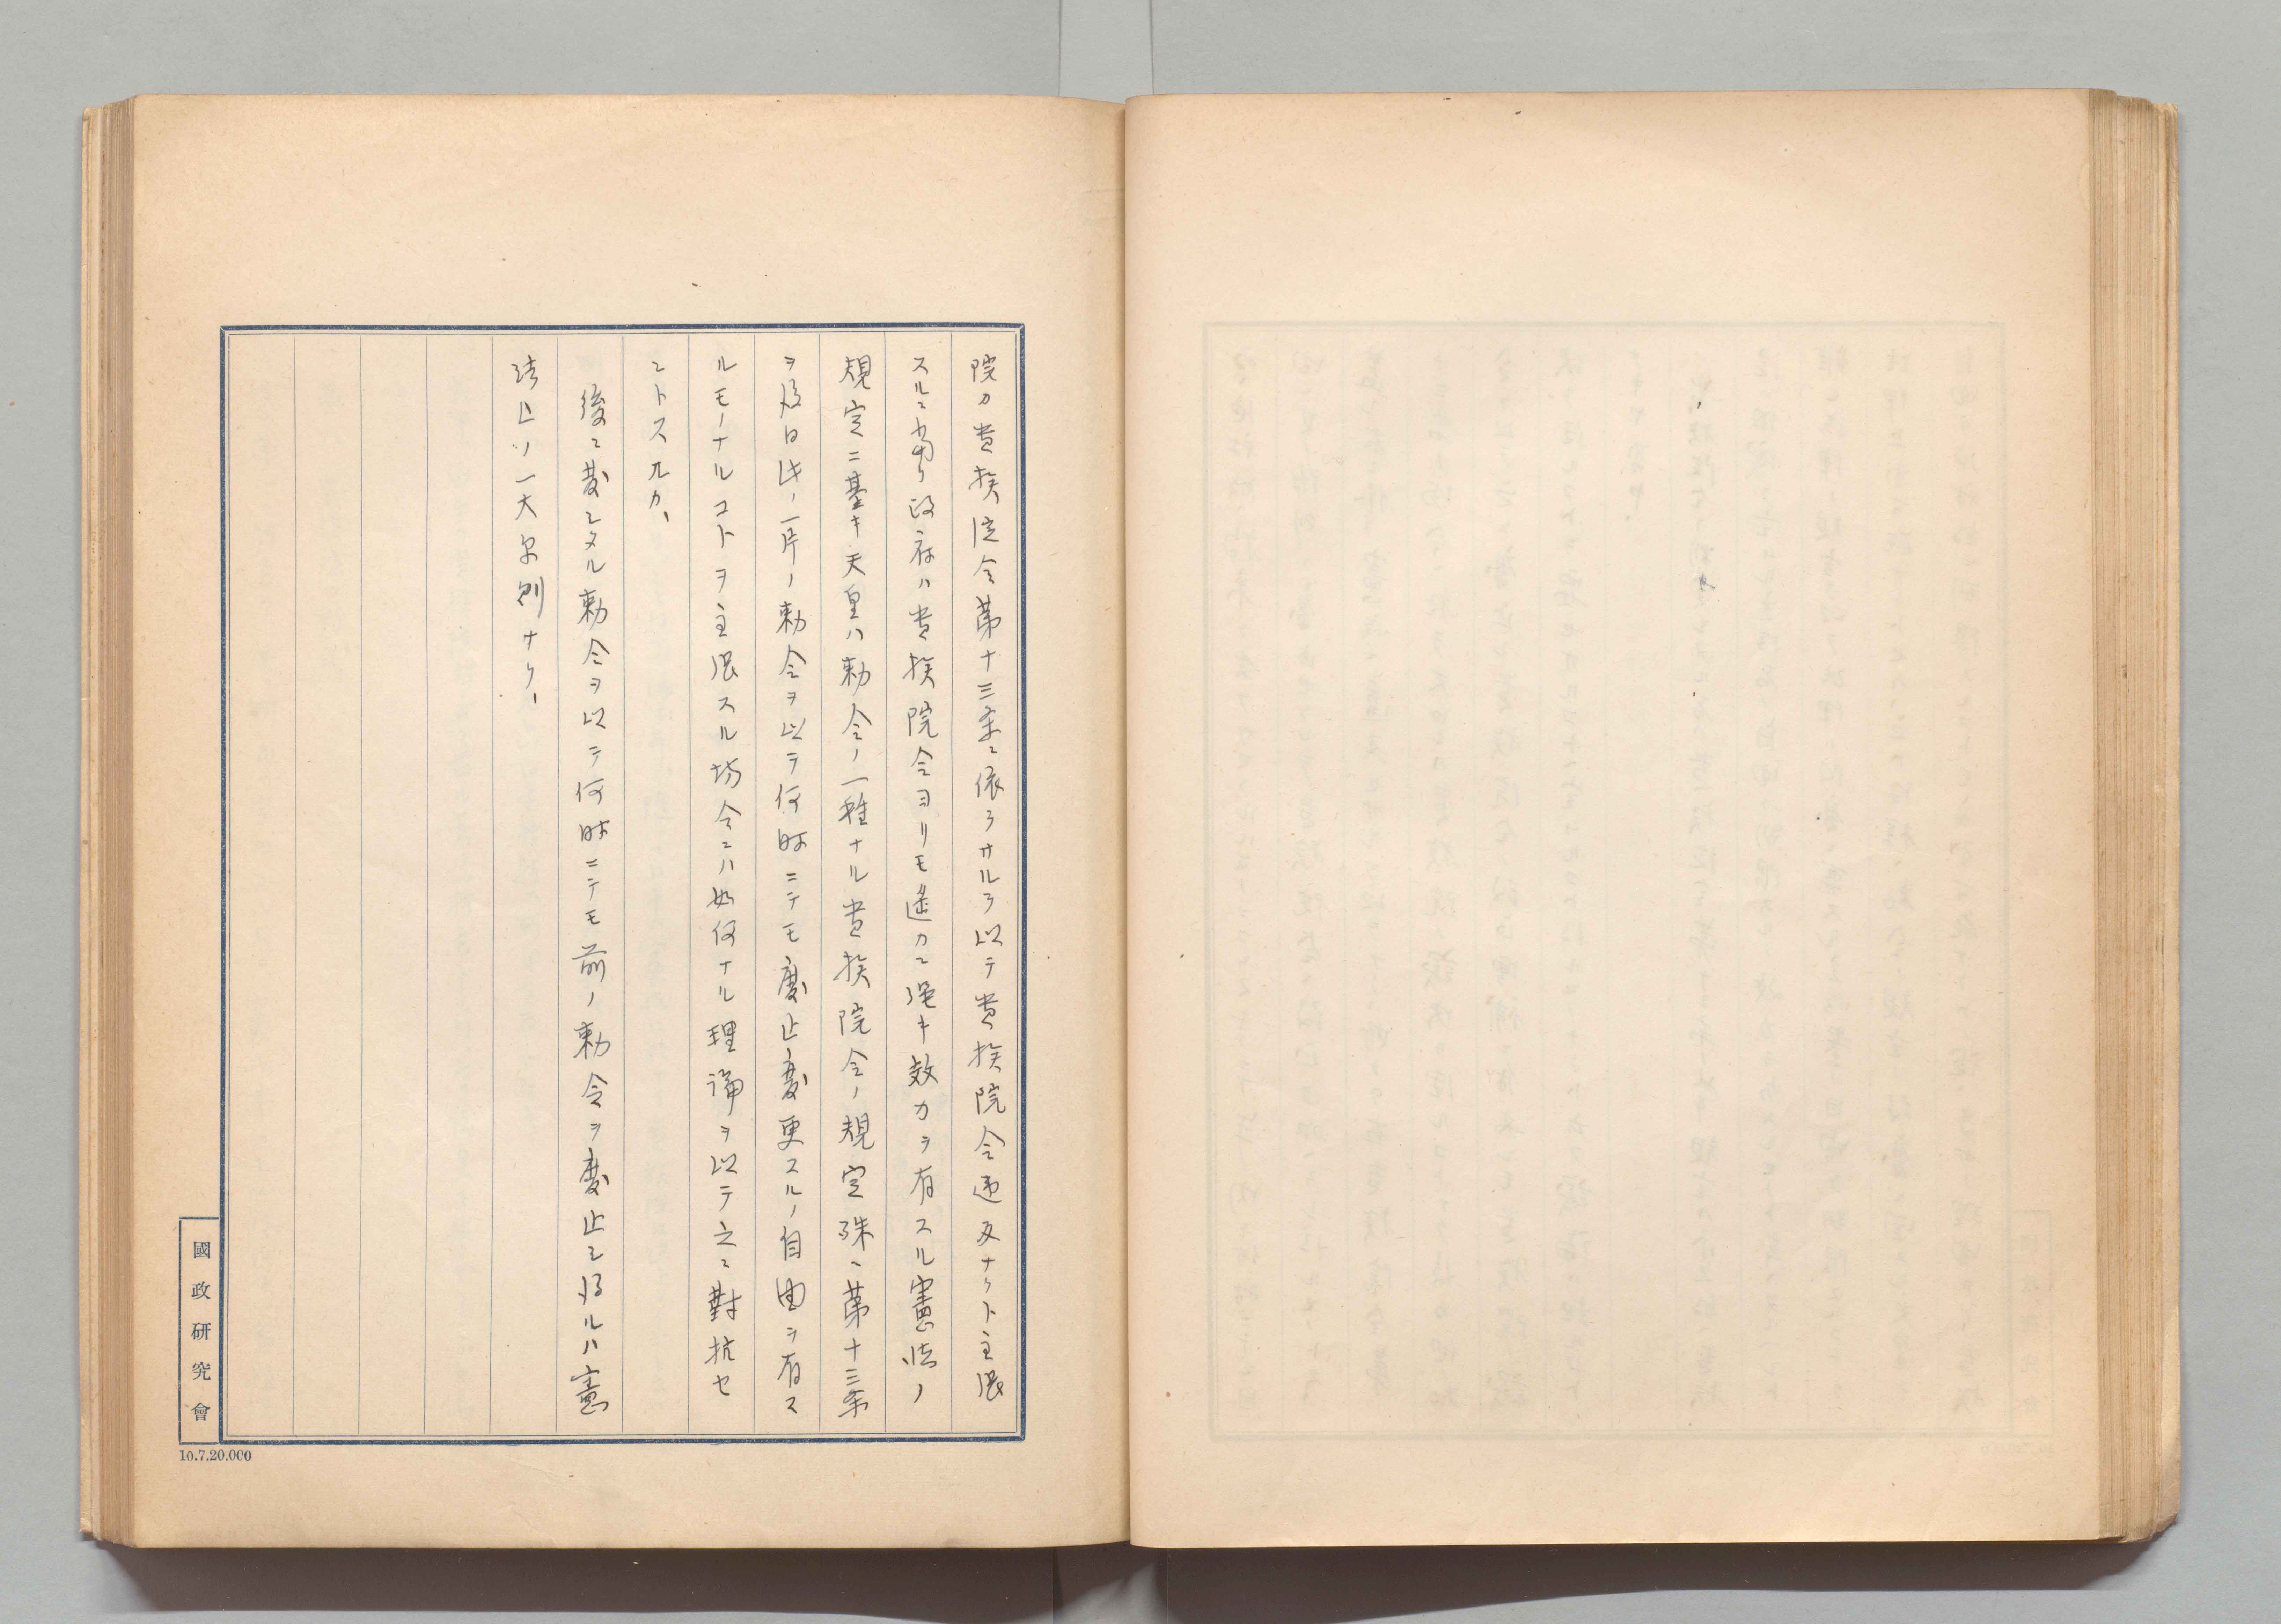 院カ貴族院令第十三条ニ依ラサルヲ以テ貴族院令違反ナリト主張
スルニ当リ政府ハ貴族院令ヨリモ遙カニ強キ效力ヲ有スル憲法ノ
規定ニ基キ天皇ハ勅令ノ一種ナル貴族院令ノ規定殊ニ第十三条
ヲ後日此ノ一片ノ勅令ヲ以テ何時ニテモ廃止変更スルノ自由ヲ有ス
ルモノナルコトヲ主張スル場合ニハ如何ナル理論ヲ以テ之ニ對抗セ
ントスルカ、
後ニ発シタル勅令ヲ以テ何時ニテモ前ノ勅令ヲ廃止シ得ルハ憲
法上ノ一大原則ナリ、
國政研究會
10.7.20.000